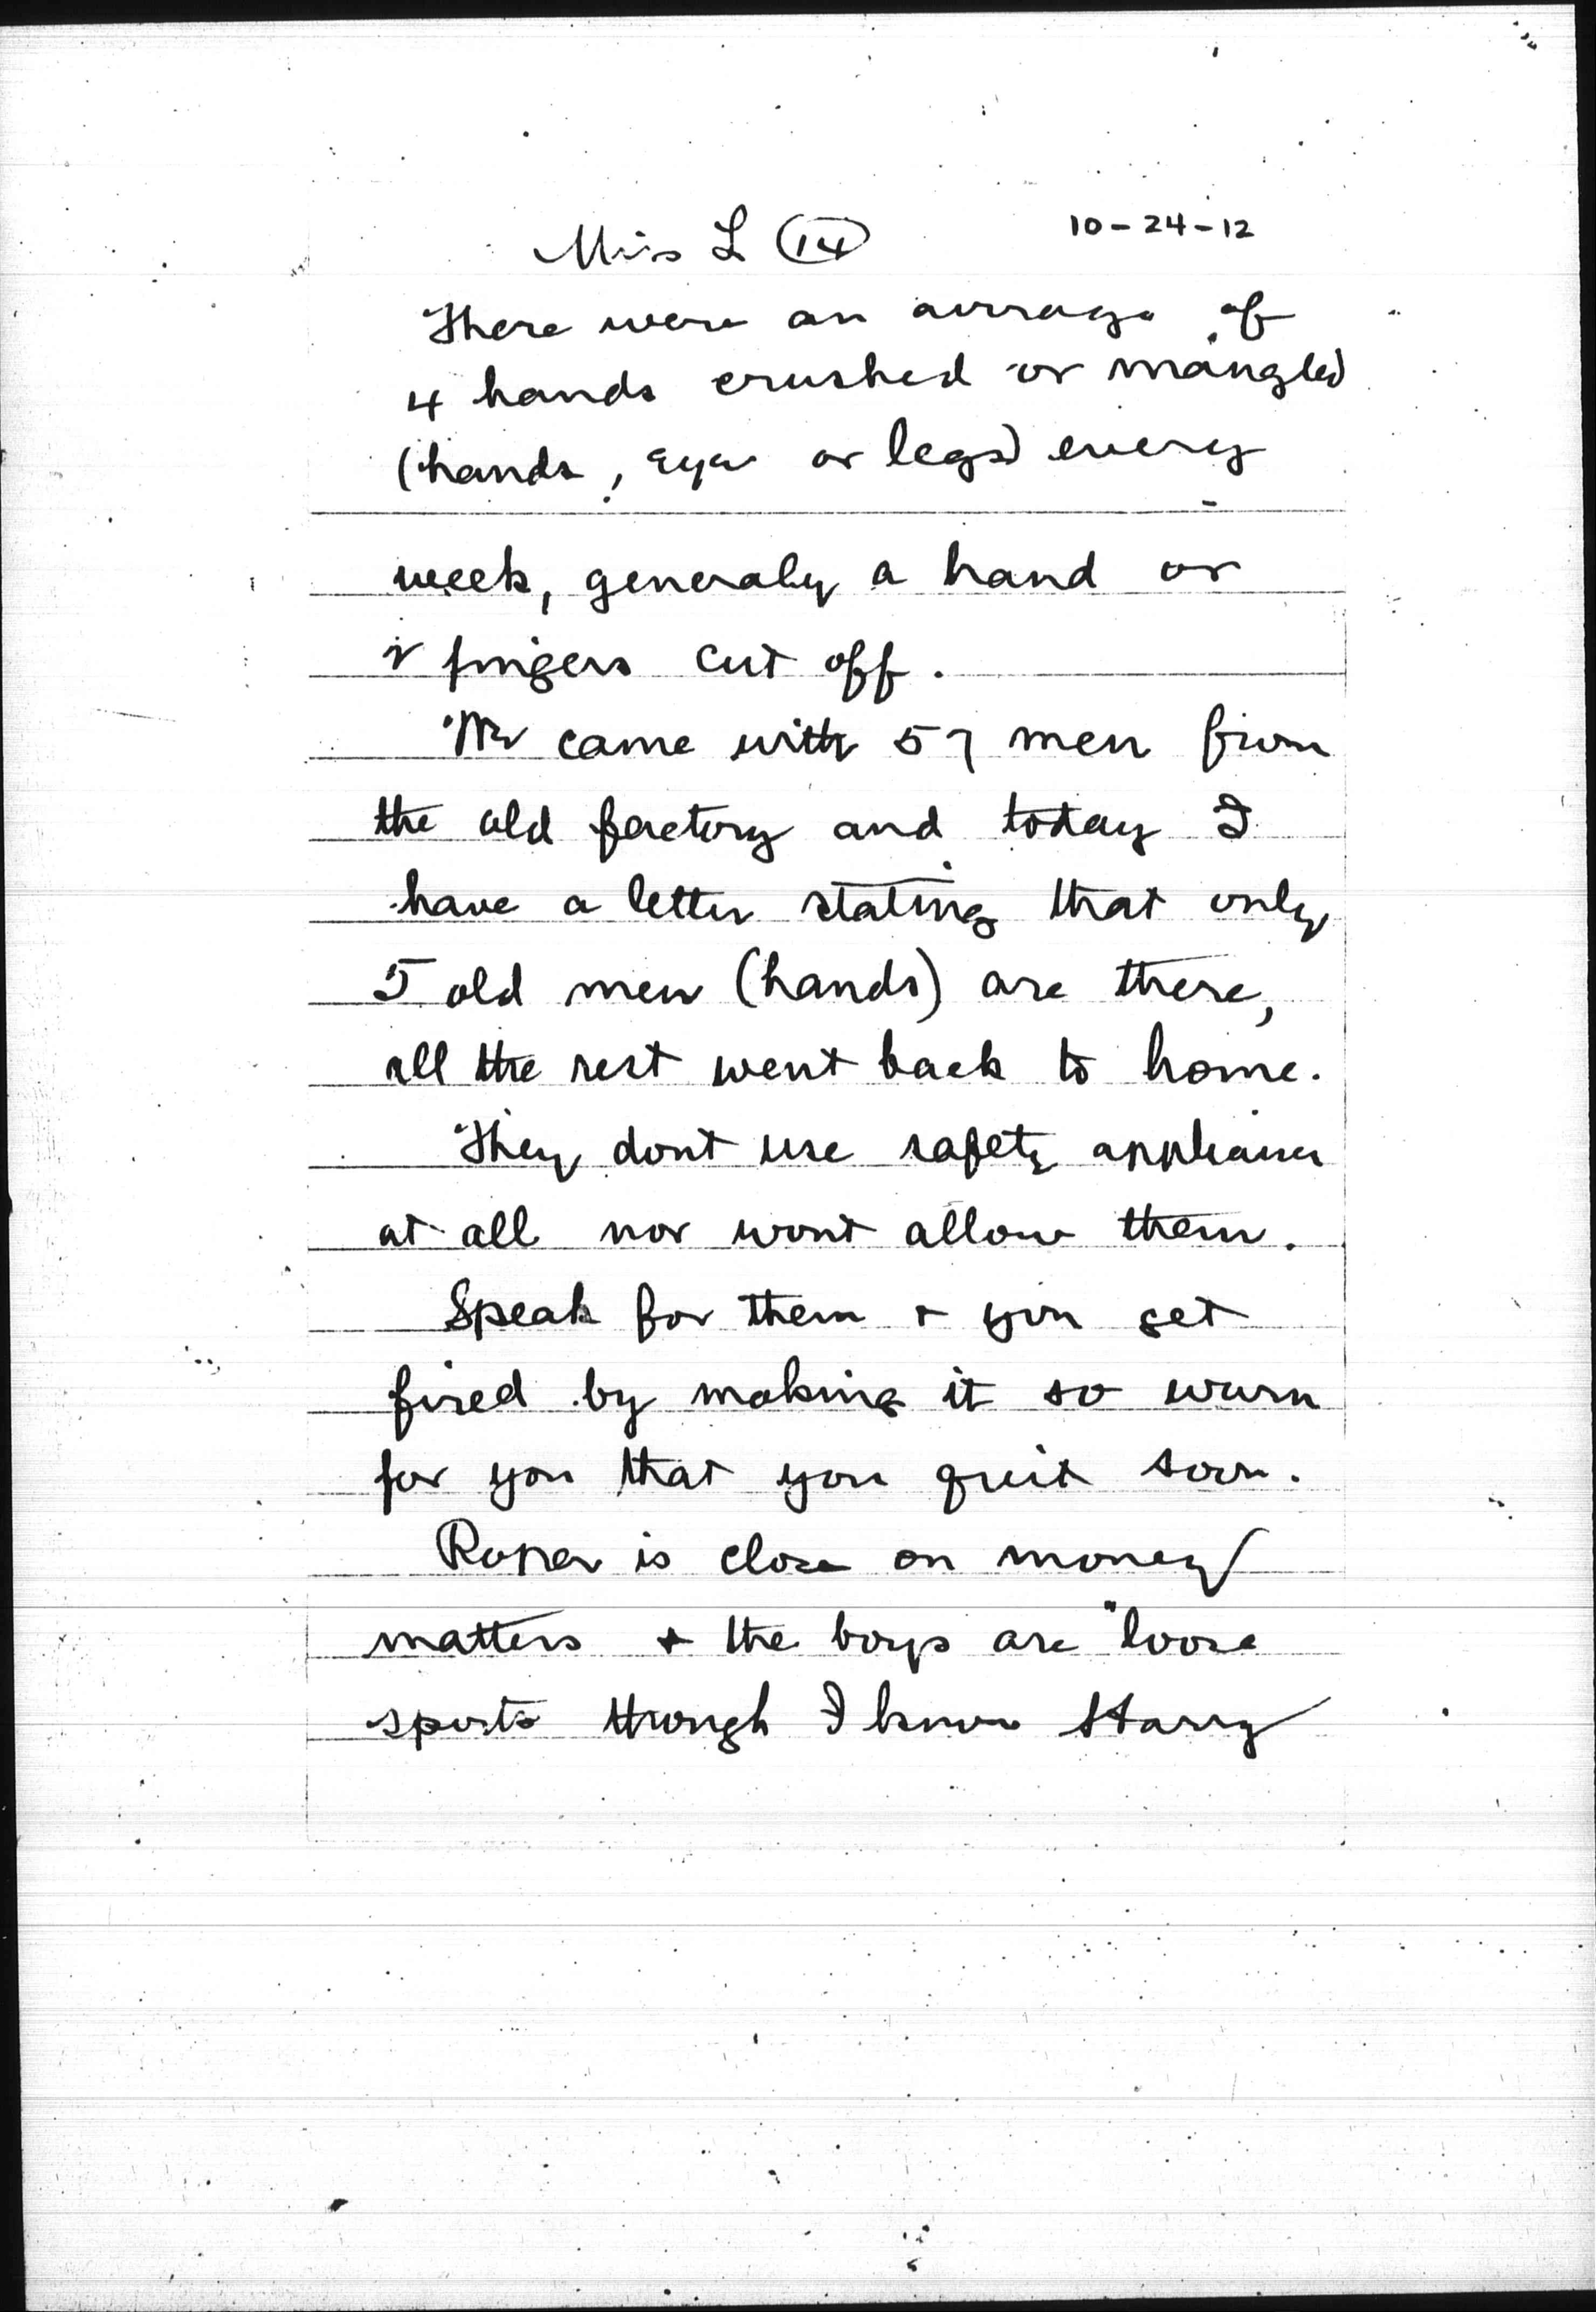 Miss L (14) 10-24-12
There were an average of
4 hands crushed or mangled
(hands, eyes or legs) every
week, generaly a hand or
2 fingers cut off.
We came with 57 men from
the old factory and today I
have a letter stating that only
5 old men (hands) are there,
all the rest went back to home.
They dont use safety appliances
at all nor wont allow them.
Speak for them + you get
fired by making it so warm
for you that you quit soon.
Roper is close on money
matters + the boys are "loose
sports though I know Harry